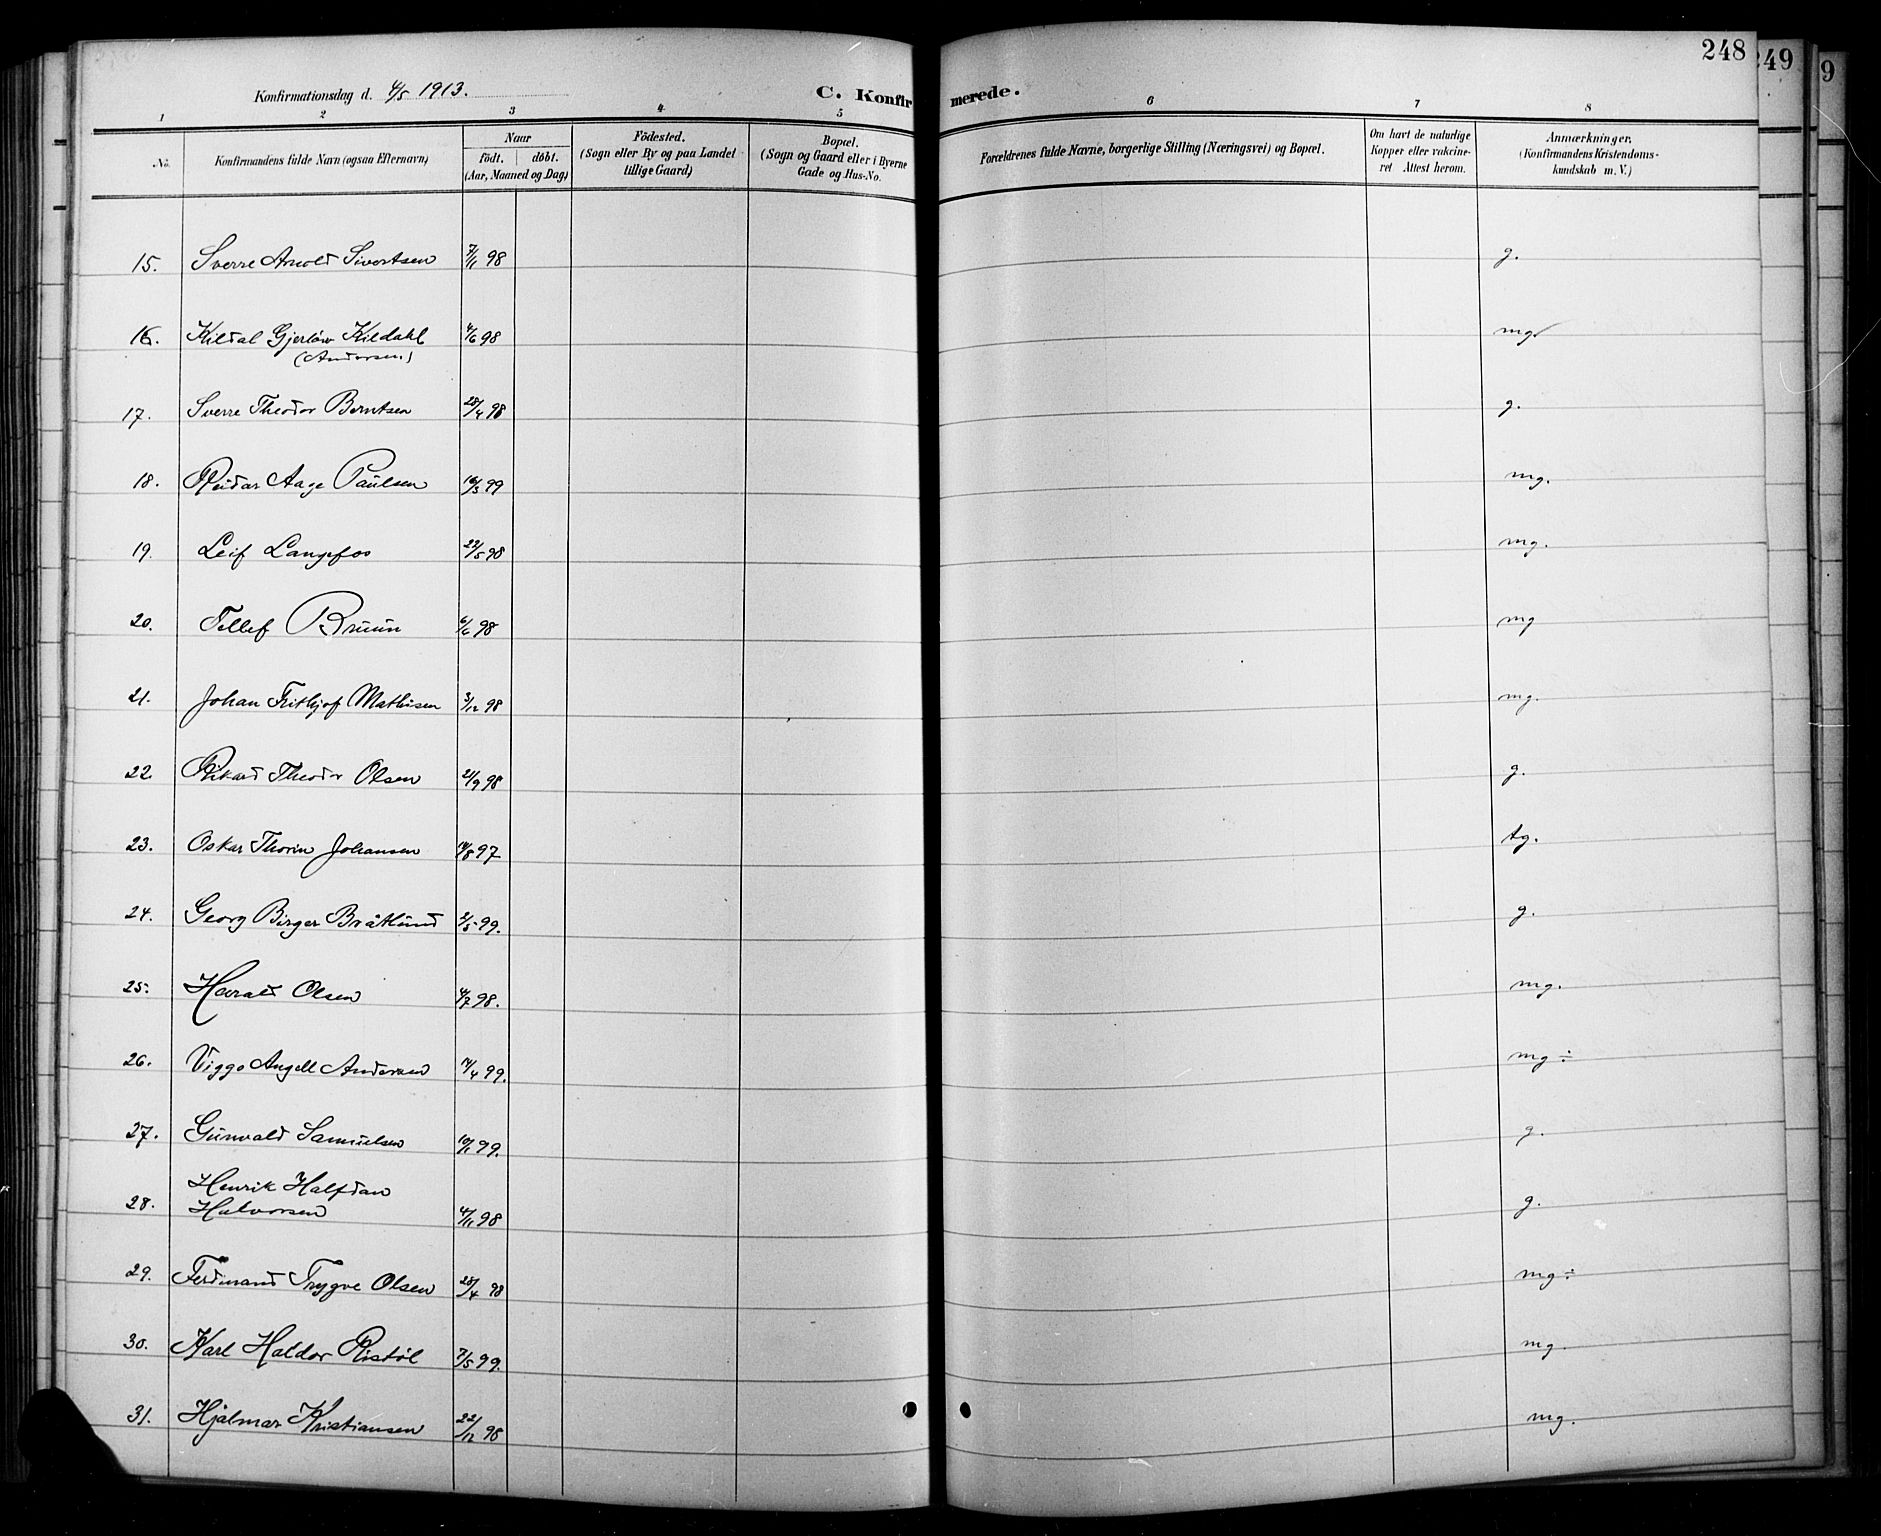 248
249
9
Konfirmationsdag d. 4/5 1913.
C. Konfirmerede.
1 2 3 4 5 6 7 8
No.
Konfirmandens fulde Navn (ogsaa Efternavn)
Naar
født. døbt.
(Aar, Maaned og Dag)
Födested.
(Sogn eller By og paa Landet
tillige Gaard)
Bopæl.
(Sogn og Gaard eller i Byerne
Gade og Hus-No.
Forældrenes fulde Navne, borgerlige Stilling (Næringsvei) og Bopæl.
Om havt de naturlige
Kopper eller vakcine-
ret Attest herom.
Anmærkninger,
(Konfirmandens Kristendoms-
kundskab m. V.)
15. Sverre Arnold Sivertsen 7/11 98 g.
16. Kildal Gjerløw Kildahl 4/6 98 mg
(Andersen)
17. Sverre Theodor Berntsen 28/4 98 g.
18. Reidar Aage Paulsen 16/3 99 mg.
19. Leif Langefos 22/5 98 mg.
20. Tellef Bruun 6/6 98 mg
21. Johan Frithjof Mathisen 3/12 98 mg.
22. Rikard Theodor Olsen 21/9 98 g.
23. Oskar Thorin Johansen 14/8 97 tg.
24. Georg Birger Bråtlund 2/5 99. g.
25. Harald Olsen 4/7 98. mg.
26. Viggo Angell Andersen 14/4 99. mg ÷
27. Gunvald Samuelsen 10/1 99. g.
28. Henrik Halfdan
Halvorsen 4/11 98 g.
29. Ferdinand Trygve Olsen 28/4 98 mg ÷
30. Karl Haldor Ristøl 7/5 99. mg.
31. Hjalmar Kristiansen 22/12 98 mg.